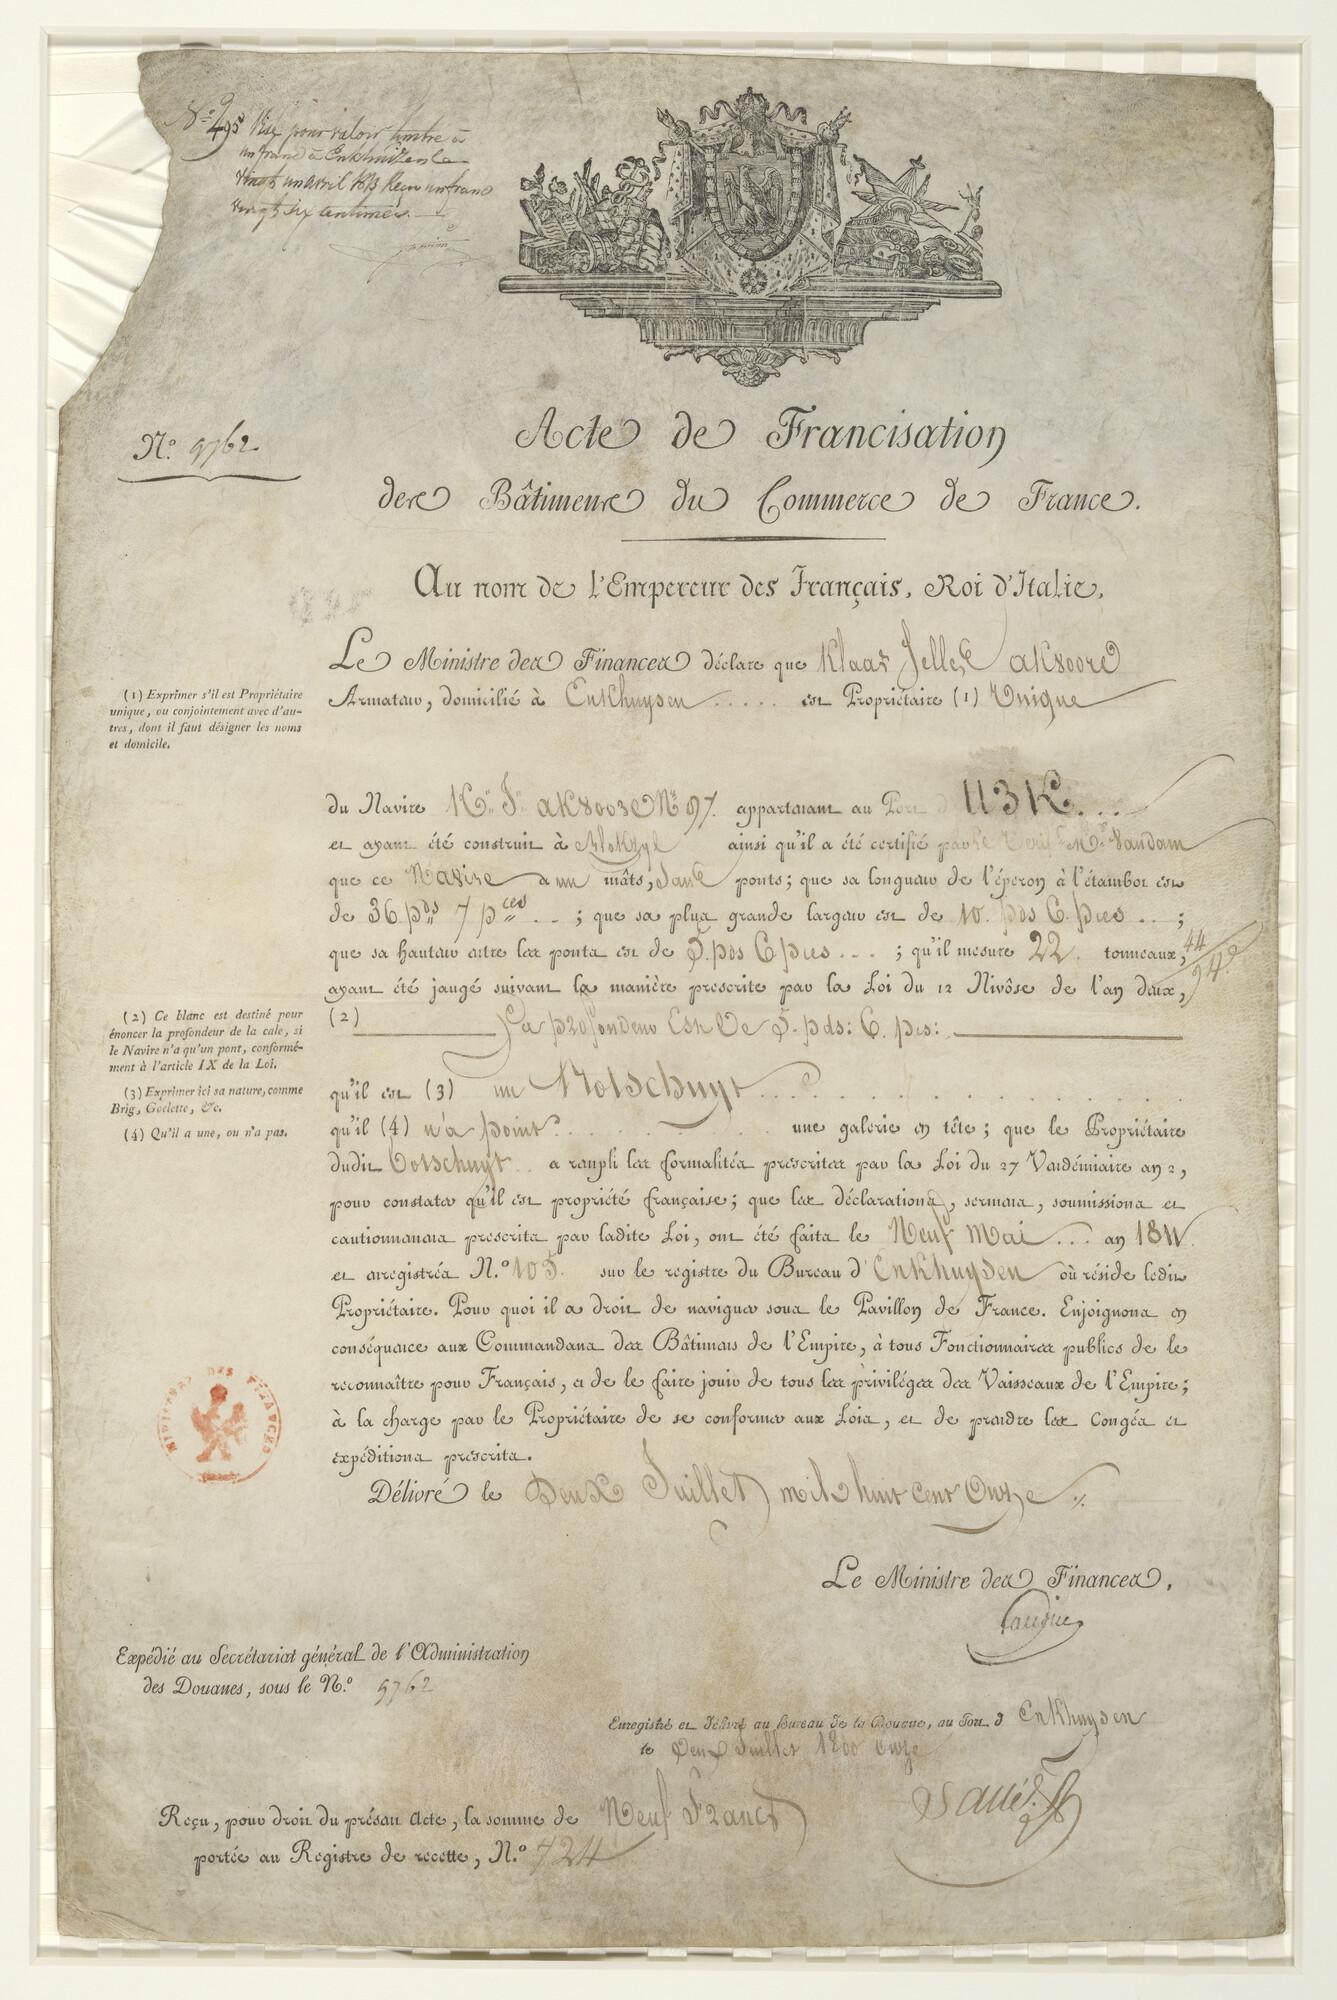 N.º 495 Visé pour valoir timbre à
un franc à Enkhuizen le
vingt un avril 1813 Reçu un franc
vingt six centimes.
N.º 9762
Acte de Francisation
des Bâtimens du Commerce de France.
Au nom de l'Empereur des Français, Roi d'Italie,
Le Ministre des Finances déclare que Klaas Jelles aksoore
Armateur, domicilié à Enkhuysen ..... est Propriétaire (1) Unique
(1) Exprimer s'il est Propriétaire
unique, ou conjointement avec d'au-
tres, dont il faut désigner les noms
et domicile.
du Navire K.n J.n aksoore N.º 97. appartenant au Port d 113 K...
et ayant été construit à ainsi qu'il a été certifié par le Mr. Vandam
que ce Navire a un mâts, Sans ponts; que sa longueur de l'éperon à l'étambot est
de 36 pds 7 pces ..; que sa plus grande largeur est de 10. pds 6. pces ..;
que sa hauteur entre les ponts est de 5. pds 6. pces ...; qu'il mesure 22. tonneaux, 44/94.e
ayant été jaugé suivant la manière prescrite par la Loi du 12 Nivôse de l'an deux,
(2) Sa profondeur Est De 5. pds: 6. pces:
(2) Ce blanc est destiné pour
énoncer la profondeur de la cale, si
le Navire n'a qu'un pont, conformé-
ment à l'article IX de la Loi.
(3) Exprimer ici sa nature, comme
Brig, Goelette, &c.
(4) Qu'il a une, ou n'a pas.
qu'il est (3) un Botschuyt....
qu'il (4) n'a point. une galerie en tête; que le Propriétaire
dudit Botschuyt.. a rempli les formalités prescrites par la Loi du 27 Vendémiaire an 2,
pour constater qu'il est propriété française; que les déclarations, sermens, soumissions et
cautionnemens prescrits par ladite Loi, ont été faits le Neuf Mai... an 1811.
et enregistrés N.º 105. sur le registre du Bureau d'Enkhuysen où réside ledit
Propriétaire. Pour quoi il a droit de naviguer sous le Pavillon de France. Enjoignons en
conséquence aux Commandans des Bâtimens de l'Empire, à tous Fonctionnaires publics de le
reconnaître pour Français, et de le faire jouir de tous les privilèges des Vaisseaux de l'Empire;
à la charge par le Propriétaire de se conformer aux Lois, et de prendre les Congés et
expéditions prescrits.
MINISTERE DES FINANCES
Délivré le Deux Juillet mil huit cent Onze
Le Ministre des Finances,
Expédié au Secrétariat général de l'Administration
des Douanes, sous le N.º 9762
Enregistré et délivré au Bureau de la Douane, au Port d Enkhuysen
le Deux Juillet 1800 Onze
Reçu, pour droit du présent Acte, la somme de Neuf Francs
portée au Registre de recette, N.º 724